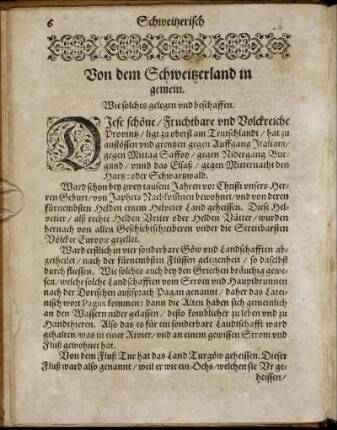 6
Schweitzerisch
Von dem Schweitzerland in
gemein.
Wie solches gelegen und beschaffen.
DJese schöne / Fruchtbare vnd Volckreiche
Provintz / ligt zu oberst am Teutschlandt / hat zu
anstössen vnd grentzen gegen Auffgang Jtaliam /
gegen Mittag Saffoy / gegen Nidergang Bur-
gund / vnnd das Elsaß / gegen Mitternacht den
Hartz oder Schwartzwald.
Ward schon bey zwey tausent Jahren vor Christi vnsers Her-
ren Geburt / von Japhets Nachkom̃nen bewohnet / vnd von deren
fürnembsten Helden einem Helvetier Land geheissen. Diese Hel-
vetier / als rechte Helden Vetter oder Helden Vätter / wurden
hernach von allen Geschichtschreiberen vnder die Streitbarsten
Völcker Europæ gezellet.
Ward erstlich in vier sonderbare Göw vnd Landschafften ab-
getheilet / nach der fürnembsten Flüssen gelegenheit / so daselbst
durch fliessen. Wie solches auch bey den Griechen bräuchig gewe-
sen / welche solche Landschafften vom Strom vnd Hauptbrunnen
nach der Dorischen außsprach Pagan genannt / daher das Latei-
nisch wort Pagus kommen: dann die Alten haben sich gemeinlich
an den Wassern nider gelassen / desto komblicher zu leben vnd zu
Handthieren. Also das es für ein sonderbare Landtschafft ward
gehalten / was in einer Rivier / vnd an einem gewissen Strom vnd
Fluß gewohnet hat.
Von dem Fluß Tur hat das Land Turgöw geheissen. Dieser
Fluß ward also genannt / weil er wie ein Ochs / welchen sie Vr ge-
heissen /